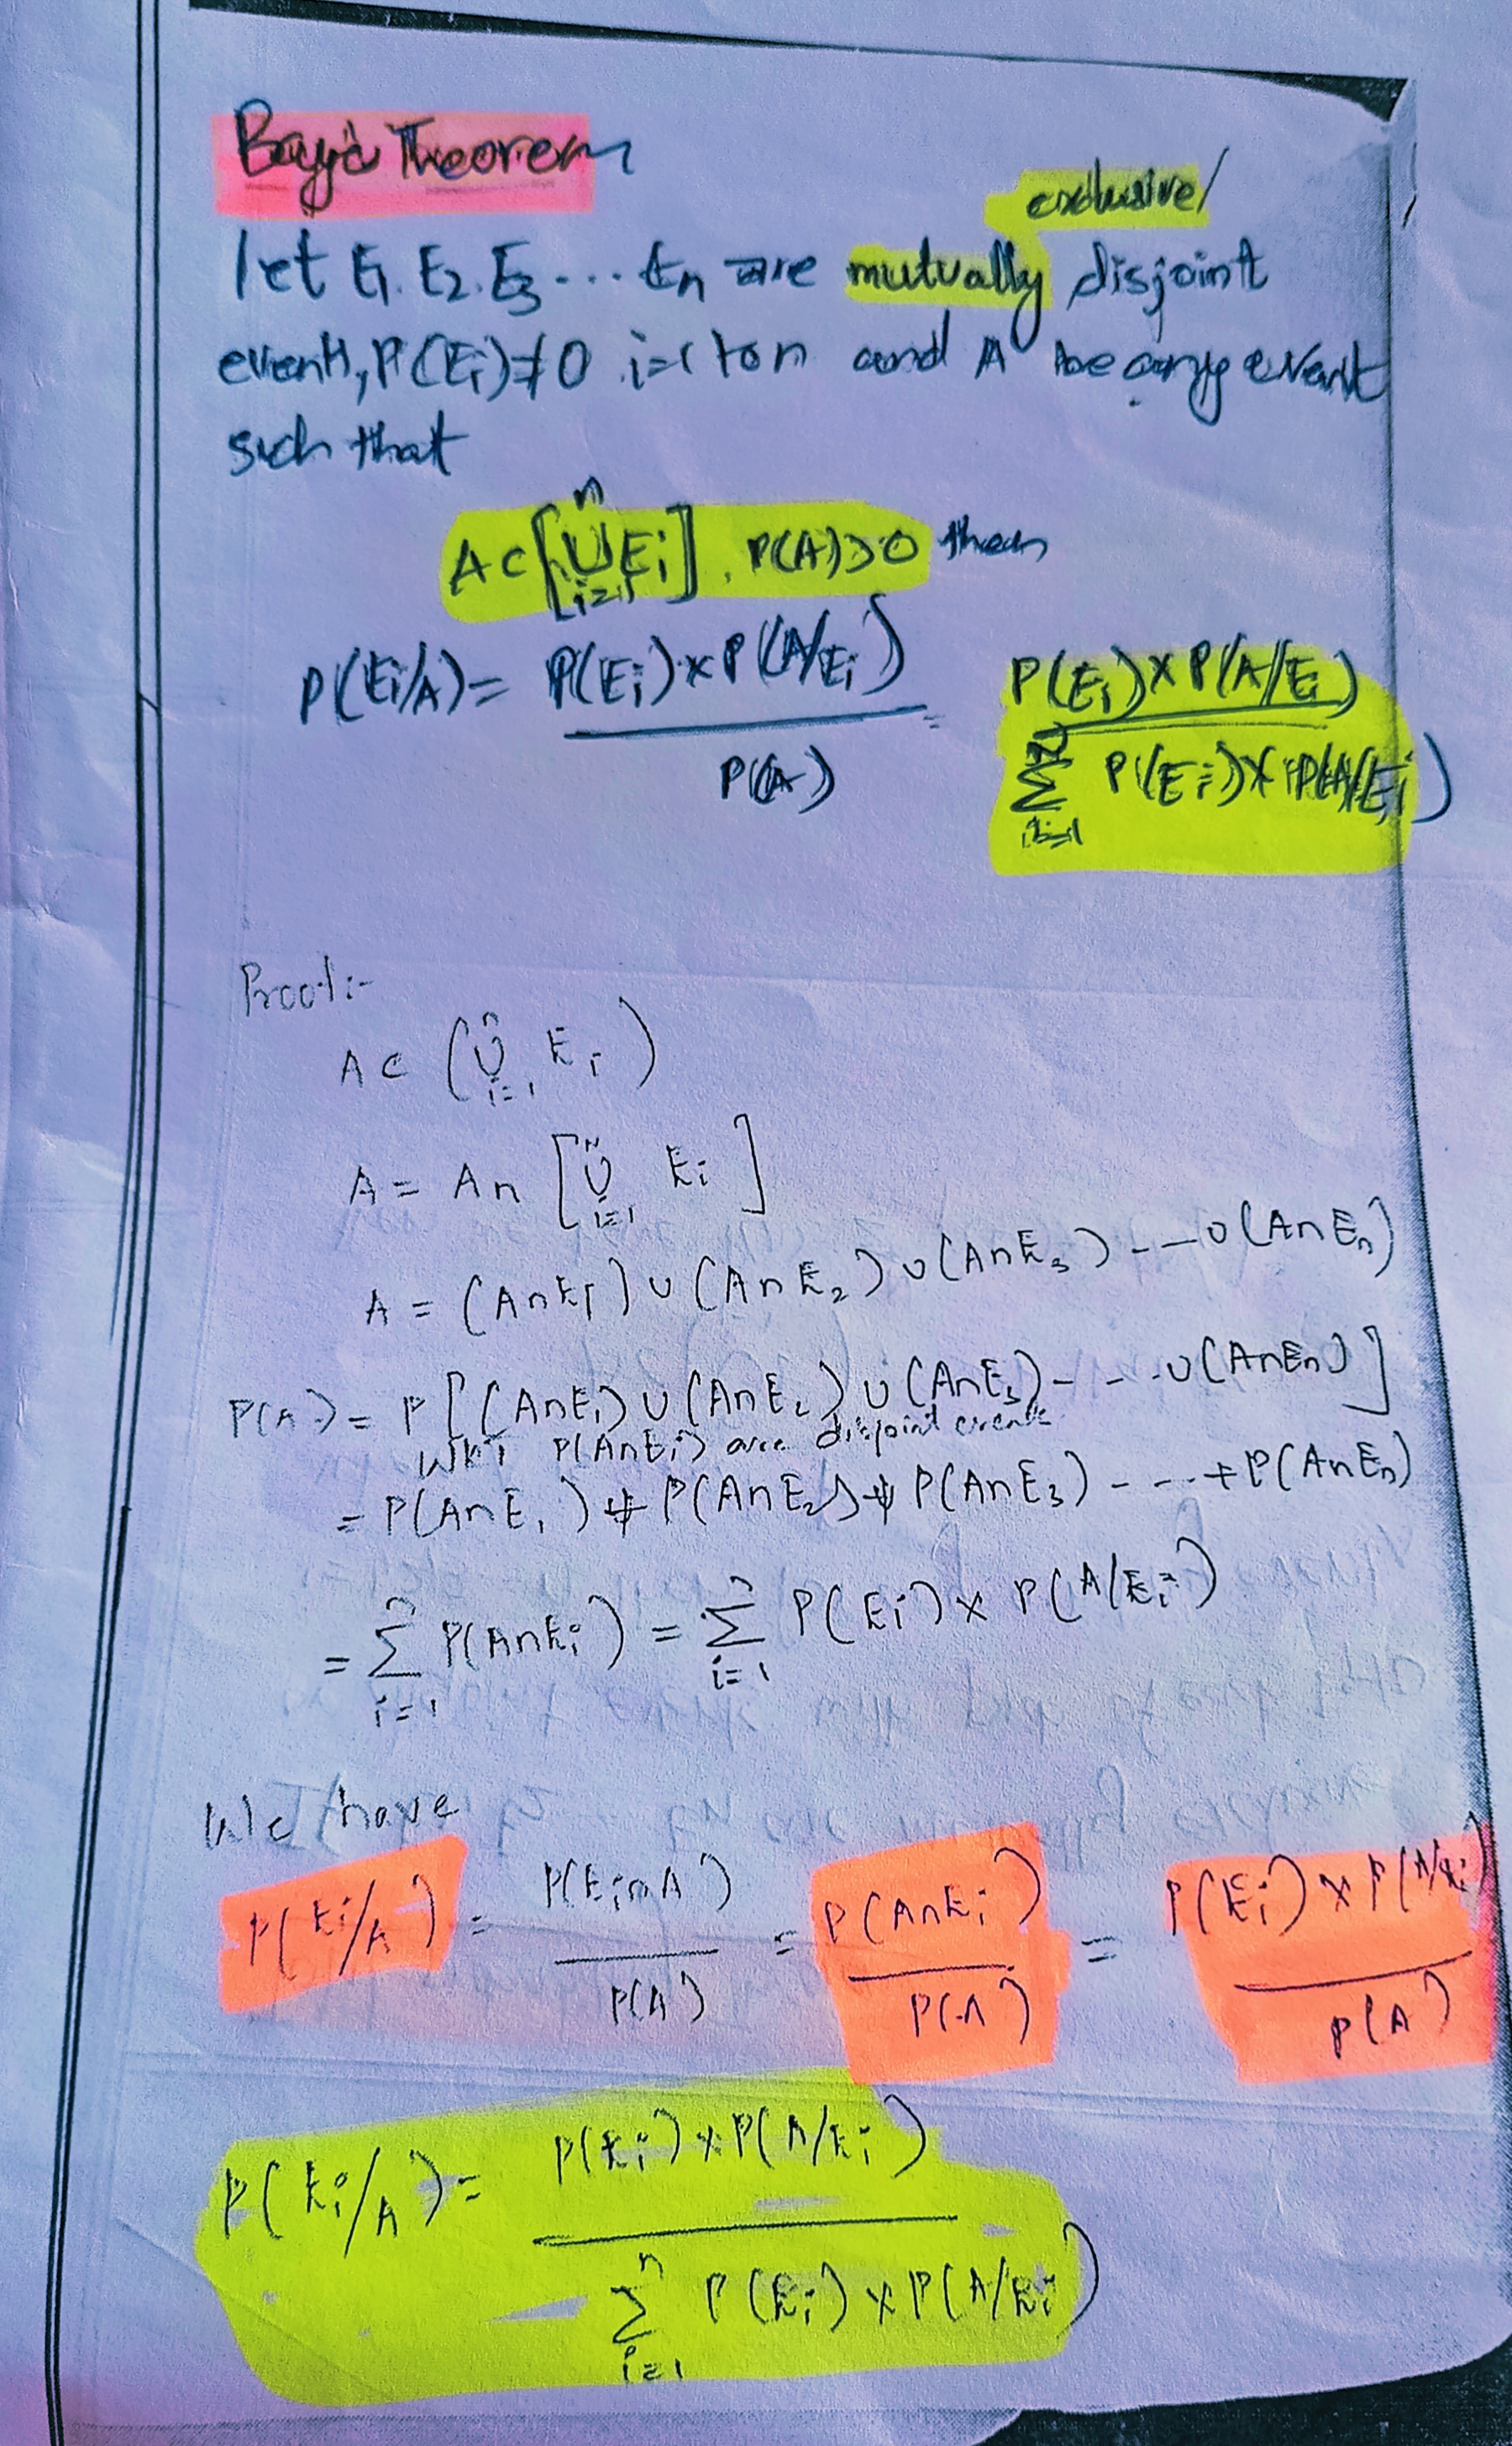 Baye's Theorem
exclusive/
let E1. E2. E3 .... En are mutually disjoint
events, P(Ei)≠0 i=1 to n and A be any event
such that
A⊂[⋃ⁿᵢ₌₁ Ei], P(A)>0 then
P(Ei/A) = P(Ei)×P(A/Ei) / P(A) = P(Ei)×P(A/Ei) / ∑ⁿᵢ₌₁ P(Ei)×P(A/Ei)
Proof:-
A⊂ (⋃ⁿᵢ₌₁ Ei)
A = A∩ [⋃ⁿᵢ₌₁ Ei]
A = (A∩E1) ∪ (A∩E2) ∪ (A∩E3) - - - ∪ (A∩En)
P(A) = P[(A∩E1) ∪ (A∩E2) ∪ (A∩E3) - - - ∪ (A∩En)]
WKT P(A∩Ei) are disjoint events
= P(A∩E1) + P(A∩E2) + P(A∩E3) - - - + P(A∩En)
= ∑ⁿᵢ₌₁ P(A∩Ei) = ∑ⁿᵢ₌₁ P(Ei) × P(A/Ei)
We have
P(Ei/A) = P(Ei∩A) / P(A) = P(A∩Ei) / P(A) = P(Ei) × P(A/Ei) / P(A)
P(Ei/A) = P(Ei) × P(A/Ei) / ∑ⁿᵢ₌₁ P(Ei) × P(A/Ei)